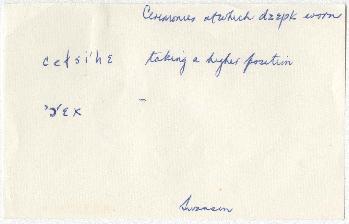 Ceremonies at which dzepk worn
celsihe taking a higher position
'ɔ'ɛx –
Swanson